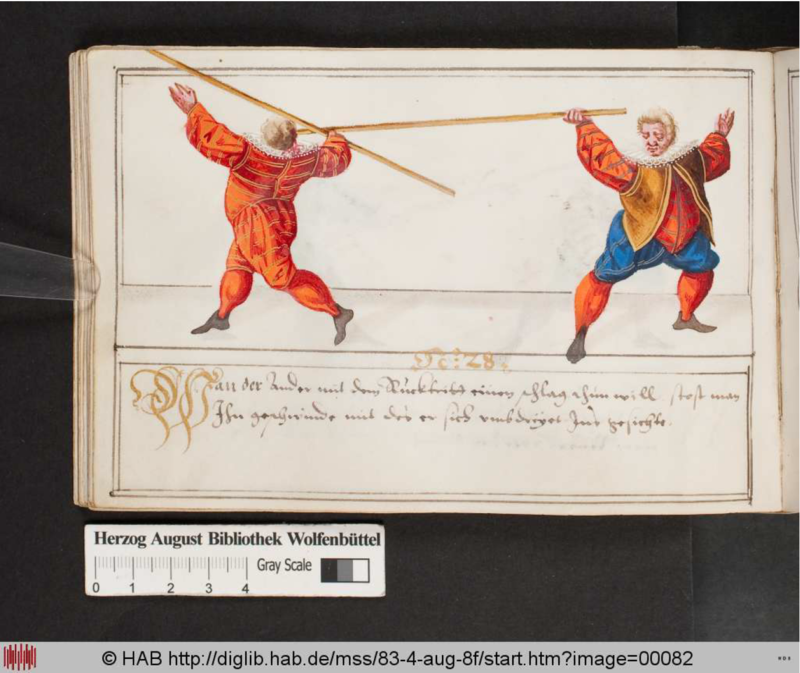 No: 28.
Wan der Ander mit dem Rucktritt einen schlag thun will, stost man
Ihn geschwinde mit des er sich umb Ins gesichte.
Herzog August Bibliothek Wolfenbüttel
Gray Scale
0 1 2 3 4
© HAB http://diglib.hab.de/mss/83-4-aug-8f/start.htm?image=00082